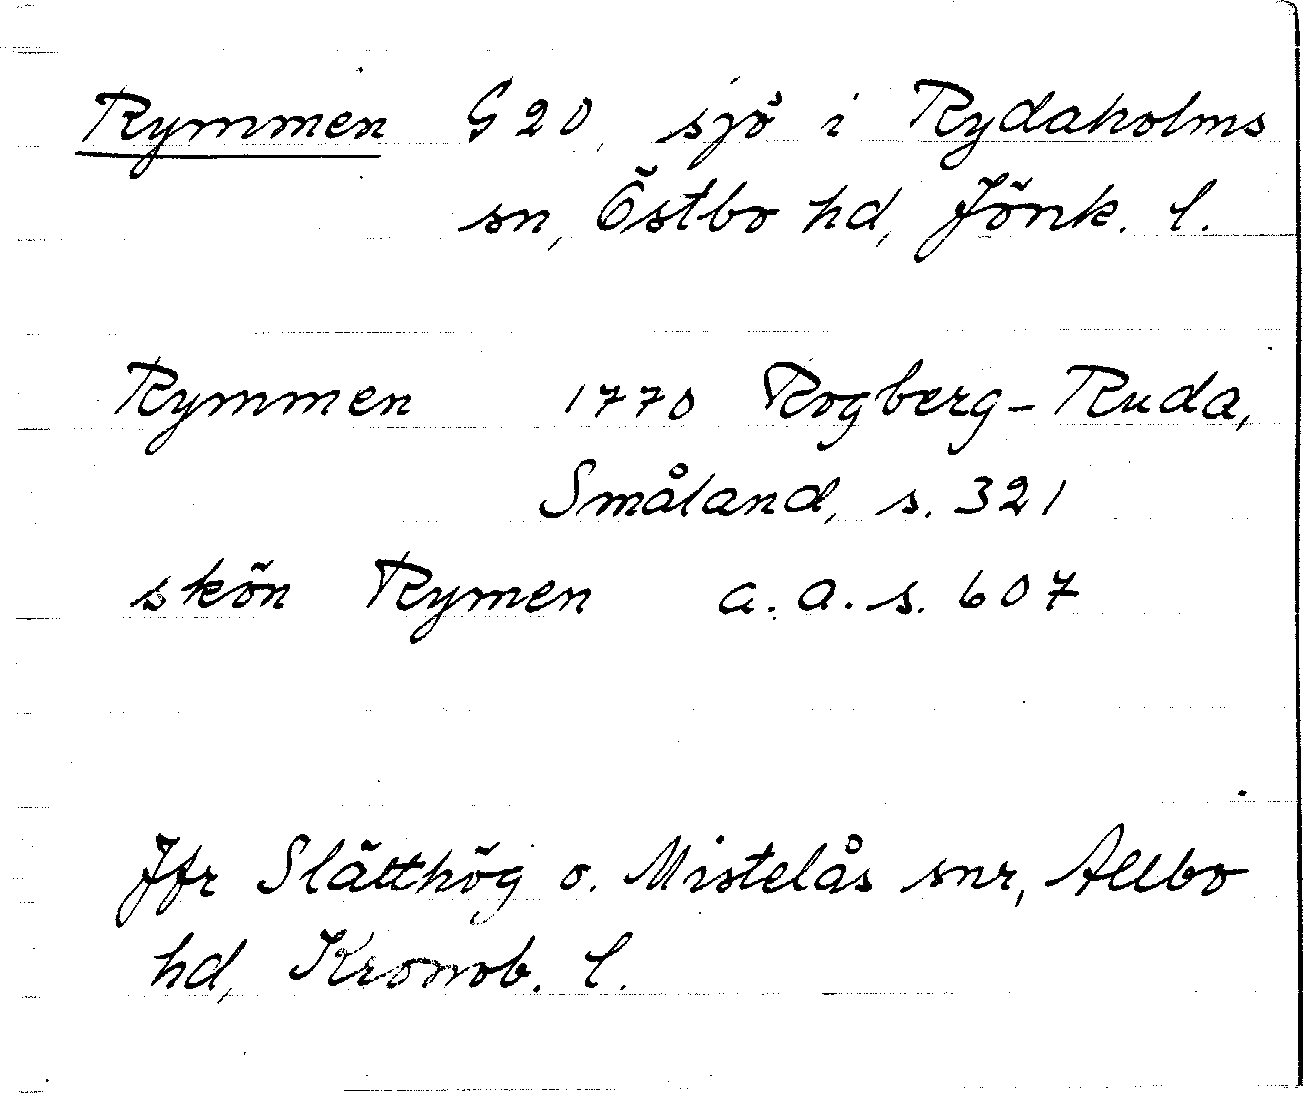 Rymmen G20, sjö i Rydaholms
sn, Östbo hd, Jönk. l.
Rymmen 1770 Rogberg-Ruda,
Småland, s. 321
skön Rymen a.a.s. 607
Jfr Slätthög o. Mistelås snr, Allbo
hd, Kronob. l.